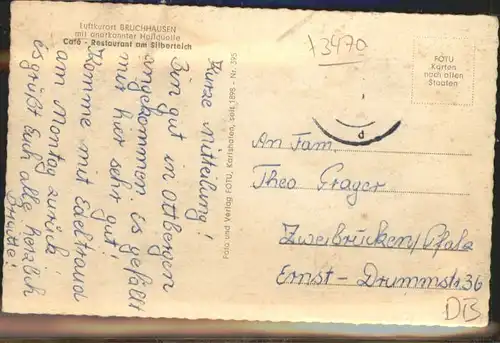 Luftkurort BRUCHHAUSEN
mit anerkannter Heilquelle
Café - Restaurant am Silberteich
Kurze Mitteilung!
Bin gut in Ottbergen
angekommen. Es gefällt
mir hier sehr gut!
Komme mit Edeltraud
am Montag zurück.
Es grüßt Euch alle herzlich
Brigitte!
Foto und Verlag FOTU, Karlshafen, seit 1898 - Nr. 595
73470
FOTU
Karten
nach allen
Staaten
An Fam.
Theo Prager
Zweibrücken/Pfalz
Ernst-Drummstr. 36
DB